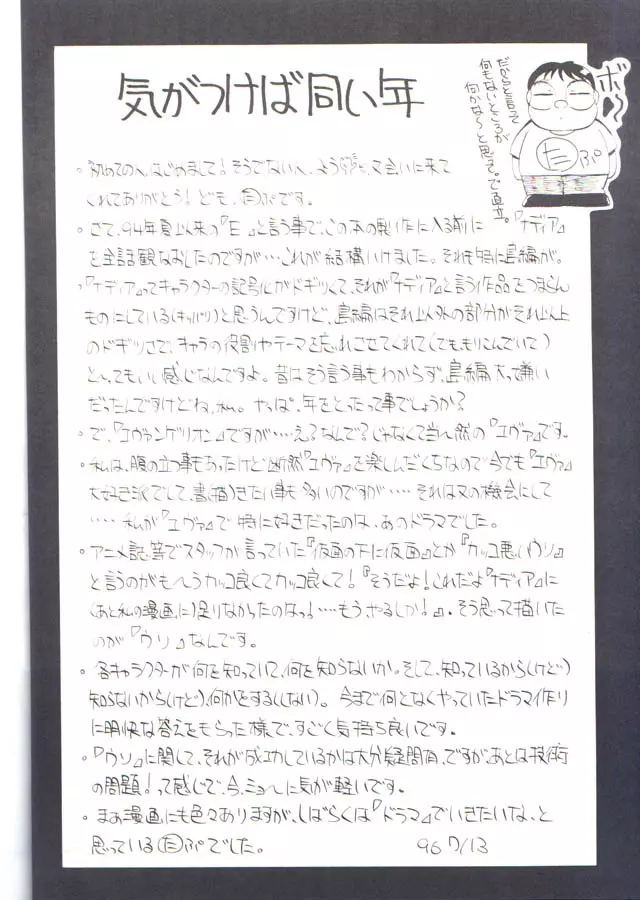 気がつけば同い年
ボ〜
だからと言って
何もないところが
何かな〜と思って。で直立。
た ぷ
・初めての人、はじめまして!そうでない人、よう、又会いに来て
くれてありがとう!ども、たぷです。
・さて、94年夏以来の『E』と言う事で、この本の製作に入る前に『ナディア』
を全話観なおしたのですが…これが結構いけました。それも特に島編が。
・『ナディア』ってキャラクターの記号化がドギツくて、それが『ナディア』と言う作品をつまらん
ものにしている(キッパリ)と思うんですけど、島編はそれ以外の部分がそれ以上
のドギツさで、キャラの役割やテーマを忘れさせてくれて(でももりこんでいて)
とってもいい感じなんですよ。昔はそう言う事もわからず、島編大っ嫌い
だったんですけどね、私。やっぱ、年をとったって事でしょうか?
・で、『エヴァンゲリオン』ですが……え?なんで?じゃなくて当然の『エヴァ』です。
・私は、腹の立つ事もあったけど断然『エヴァ』を楽しんだくちなので今でも『エヴァ』
大好き派でして、書(描)きたい事も多いのですが……それは又の機会にして
……私が『エヴァ』で特に好きだったのは、あのドラマでした。
・アニメ誌等でスタッフが言っていた『仮面の下に仮面』とか『カッコ悪いウソ』
と言うのがも〜うカッコ良くてカッコ良くて!『そうだよ!これだよ『ナディア』に
(あと私の漫画に)足りなかったのはっ!……もう、やるしか!』。そう思って描いた
のが『ウソ』なんです。
・各キャラクターが何を知っていて、何を知らないか。そして、知っているから(けど)
知らないから(けど)、何かをする(しない)。今まで何となくやっていたドラマ作り
に明快な答えをもらった様で、すごく気持ち良いです。
・『ウソ』に関して、それが成功しているかは大分疑問有、ですが、あとは技術
の問題!って感じで、今、ミョ〜に気が軽いです。
・まあ漫画にも色々ありますが、しばらくは『ドラマ』でいきたいな、と
思っているたぷでした。 96 7/13